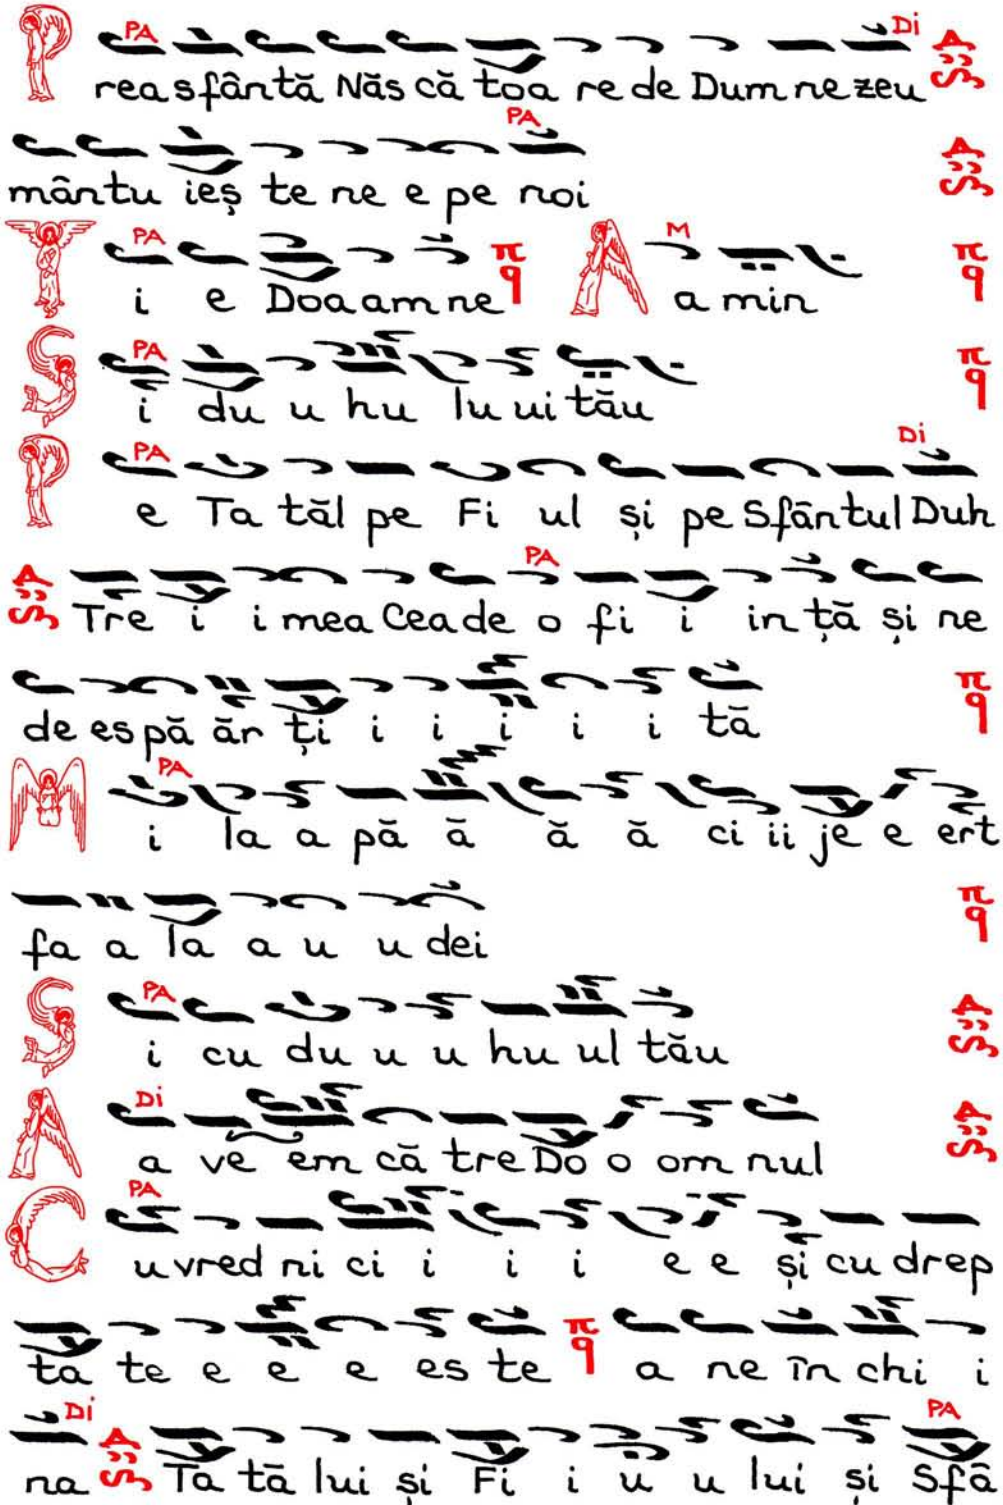 PA Di
Preasfântă Născătoa re de Dumnezeu
PA
mântu ieș te ne e pe noi
PA M
Ți e Doaamne A a min
PA
Și i du u hu lu ui tău
PA Di
Pe Ta tăl pe Fi ul și pe Sfântul Duh
PA
Tre i i mea Cea de o fi i in ță și ne
de es pă ăr ți i i i i i tă
PA
Mi la a pă ă ă ă ci ii je e ert
fa a la a u u dei
PA
Și cu du u u hu ul tău
Di
A a ve em că tre Do o om nul
PA
Cu vred ni ci i i i e e și cu drep
ta te e e e es te a ne în chi i
Di PA
na Ta tă lui și Fi i u u lui și Sfâ